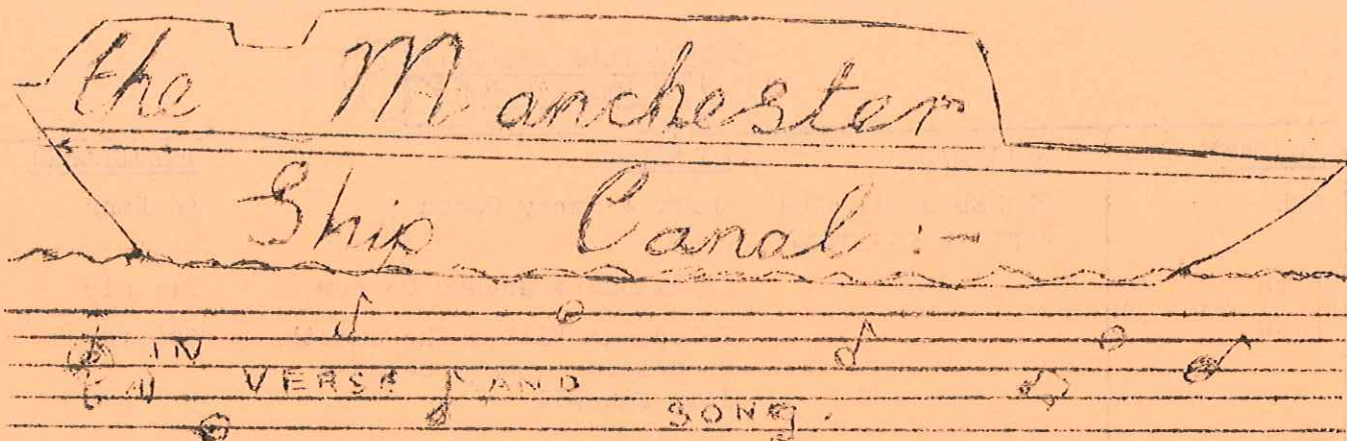 the Manchester
Ship Canal :-
IN
VERSE AND
SONG.